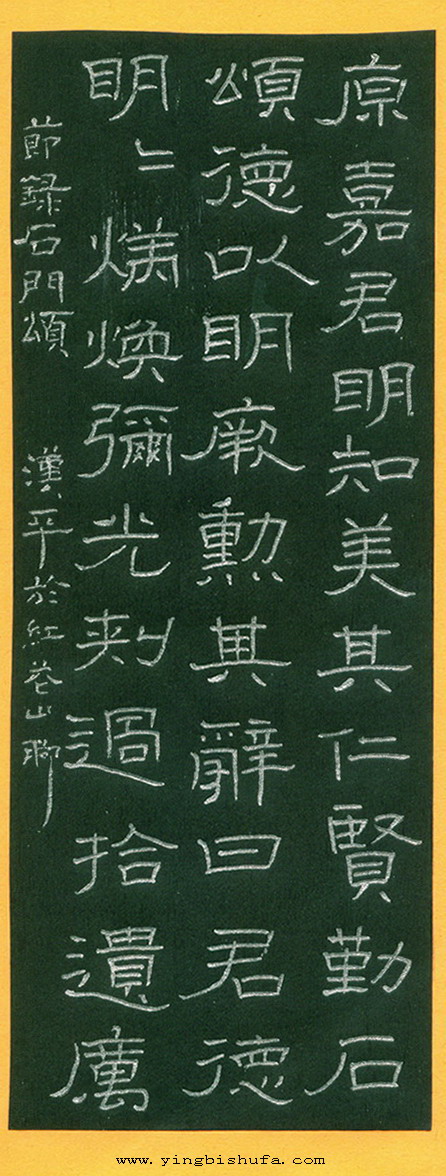 原嘉君明知美其仁賢勤石
頌德以明厥勳其辭曰君德
明〻炳煥彌光刺過拾遺厲
節錄石門頌 漢平於紅花山
www.yingbishufa.com